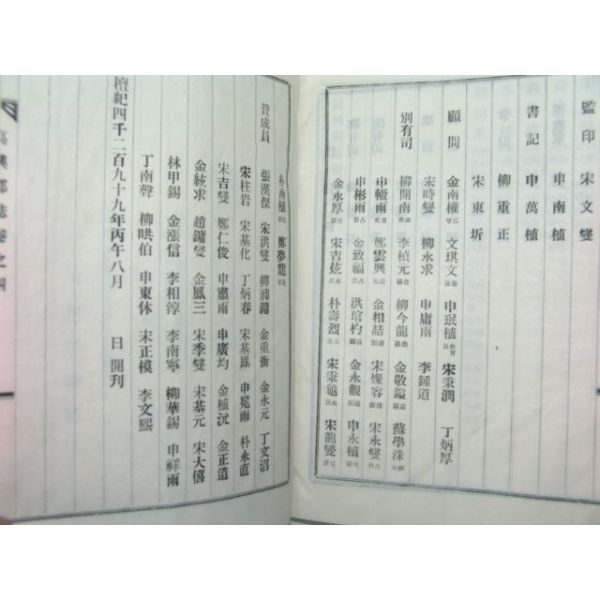 監印 宋文燮
申南植
書記 申萬植
柳重正
宋東圻
顧問 金南權 文琪文 申珉植 宋秉潤 丁炳厚
宋時燮 柳永求 申庸南 李鍾道
別有司 柳開南 李楨元 柳今龍 金敬鎰 蘇學洙
申轍雨 鄭雲興 金相喆 宋燦容 宋永燮
申彬雨 金致福 洪瑃杓 金永觀 申永植
金永厚 宋吉炫 朴壽烈 宋秉龜 宋龍燮
朴南植 鄭夢龍
贊成員 張漢傑 宋洪燮 柳浦鏽 金重衡 金永元 丁文沼
宋柱岩 宋基化 丁炳春 宋基鳳 申冕雨 朴永直
宋吉燮 鄭仁俊 申蕭雨 申廣均 金植沅 金正道
金統求 趙鏞燮 金鳳三 宋季燮 宋基元 宋大僖
林甲錫 金漲信 李相淳 李南寧 柳華錫 申祥雨
丁南聲 柳晎伯 申東休 宋正模 李文熙
檀紀四千二百九十九年丙午八月 日 開刊
高興郡誌卷之四